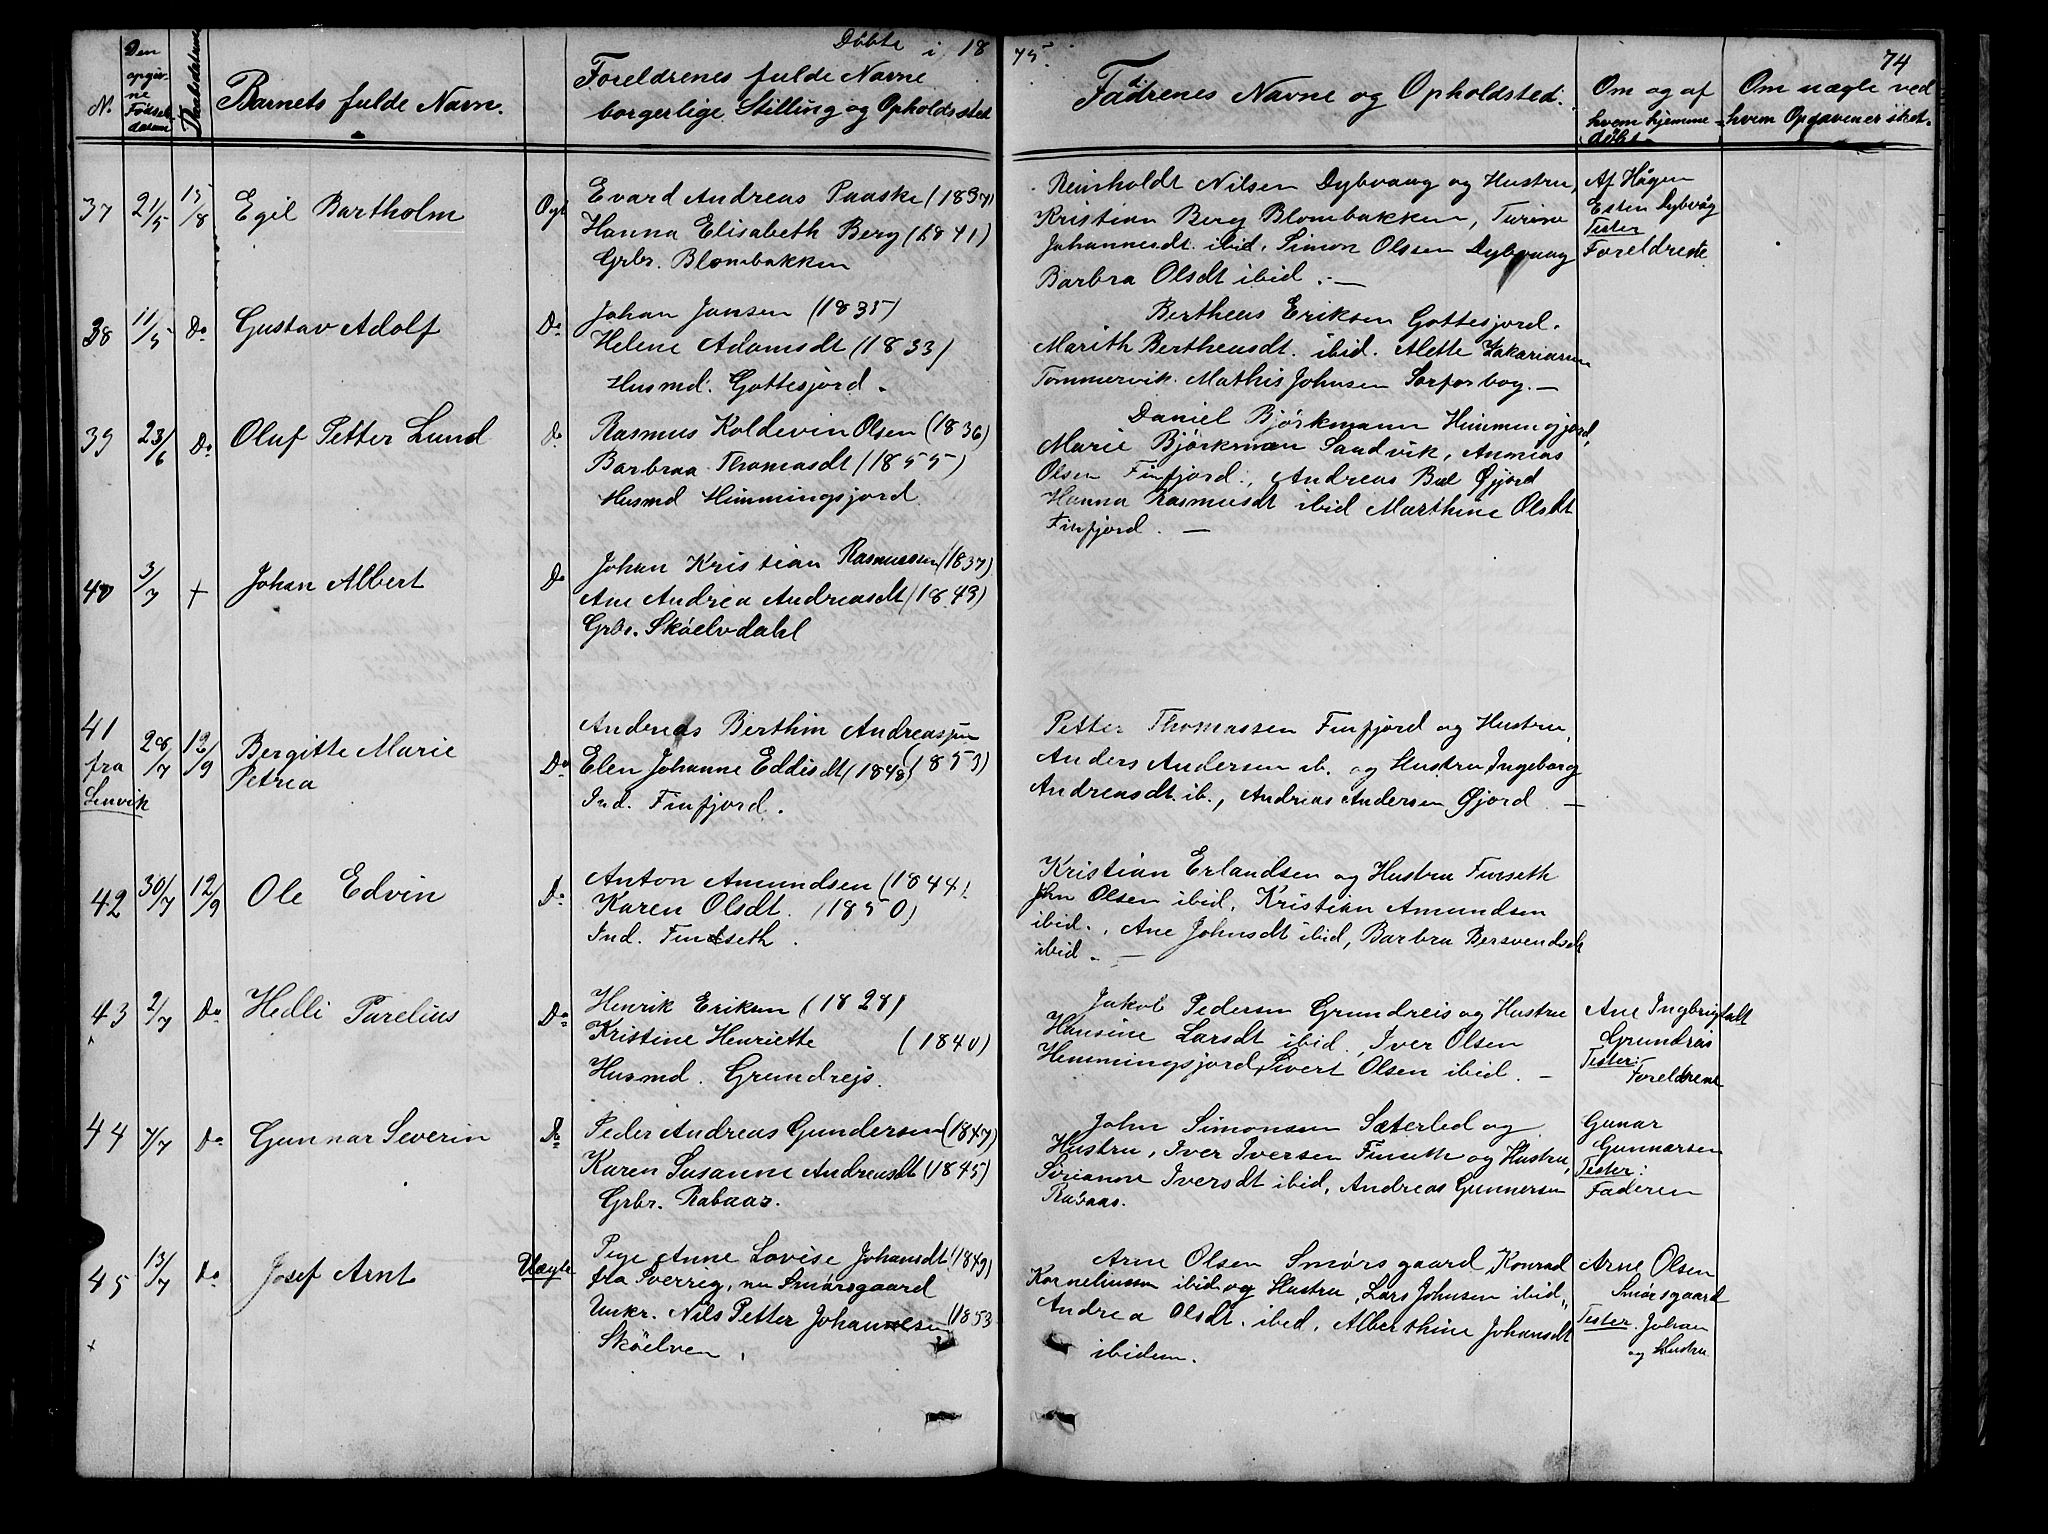 Døbte i 1875. 74
N. Den opgivne Fødselsdatum Daabsdatum Barnets fulde Navn. Foreldrenes fulde Navne borgerlige Stilling og Opholdssted Faddrenes Navne og Opholdsted. Om og af hvem hjemmedøbt Om nægle ved hvem Opgaven er skeet.
37 21/5 15/8 Egil Bartholm Ogt Evard Andreas Paaske (1837)
Hanna Elisabeth Berg (1841)
Grbr. Blombakken
Reinholdt Nilsen Dybvaag og Hustru,
Kristian Berg Blombakken, Turine
Johannesdt. ibid, Simon Olsen Dybvaag
Barbra Olsdt ibid. —
Af Hågen
Esten Dybvåg
Tester
Foreldrene
38 11/5 Do Gustav Adolf Do Johan Jansen (1835)
Helene Adamsdt (1833)
Husmd. Gottesjord.
Bertheus Eriksen Gottesjord.
Marith Bertheusdt. ibid. Alette Zakariasen
Tommervik. Mathis Johnsen Sørforbog. —
39 23/6 Do Oluf Petter Lund Do Rasmus Koldevin Olsen (1836)
Barbraa Thomasdt (1855)
Husmd Himmingsjord
Daniel Bjørkmann Himmingjord,
Marie Bjørkman Sandvik, Ananias
Olsen Finfjord., Andreas Bul Øjord
Hanna Rasmusdt ibid Marthine Olsdt
Finfjord. —
40 3/7 + Johan Albert Do Johan Kristian Rasmussen (1837)
Ane Andrea Andreasdt (1849)
Grbr. Skøelvdahl
41 fra Lenvik 28/7 12/9 Bergitte Marie
Petrea
Do Andreas Berthin Andreassen
Elen Johanne Eddisdt (1848) (1853)
Ind. Finfjord.
Petter Thomassen Finfjord og Hustru,
Anders Andersen ib. og Hustru Ingeborg
Andreasdt. ib., Andreas Andersen Øjord. —
42 30/7 12/9 Ole Edvin Do Anton Amundsen (1844)
Karen Olsdt. (1850)
Ind. Finseth.
Kristian Erlandsen og Hustru Furseth
John Olsen ibid, Kristian Amundsen
ibid., Ane Johnsdt ibid, Barbra Bersvendsdt
ibid. —
43 2/7 Do Helli Parelius Do Henrik Eriksen (1828)
Kristine Henriette (1840)
Husmd. Grundrejs.
Jakob Pedersen Grundreis og Hustru
Hansine Larsdt ibid., Iver Olsen
Hemmingsjord, Sivert Olsen ibid. —
Ane Ingbrigtsdt
Grundreis
Tester:
Foreldrene
44 7/7 Do Gunnar Severin Do Peder Andreas Gundersen (1847)
Karen Susanne Andreasdt (1845)
Grbr. Rabaas.
John Simonsen Sæterled og
Hustru, Iver Iversen Finseth og Hustru,
Sirianne Iversdt ibid, Andreas Gunnersen
Rabaas.
Gunar
Gunnarsen
Tester:
Faderen
45 13/7 Do Josef Arnt Uægte Pige Anne Lovise Johansdt (1849)
fra Sverrig, nu Smørsgaard
Unkr. Nils Petter Johannesen (1853
Skøelven.
Arne Olsen Smørsgaard, Konrad
Korneliussen ibid, og Hustru, Lars Johnsen ibid,
Andrea Olsdt. ibid, Alberthine Johansdt
ibidem.
Arne Olsen
Smørsgaard
Tester. Johan
og Hustru